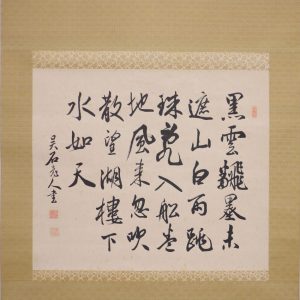 黑雲飜墨未
遮山白雨跳
珠亂入船卷
地風来忽吹
散望湖樓下
水如天
吴石老人書